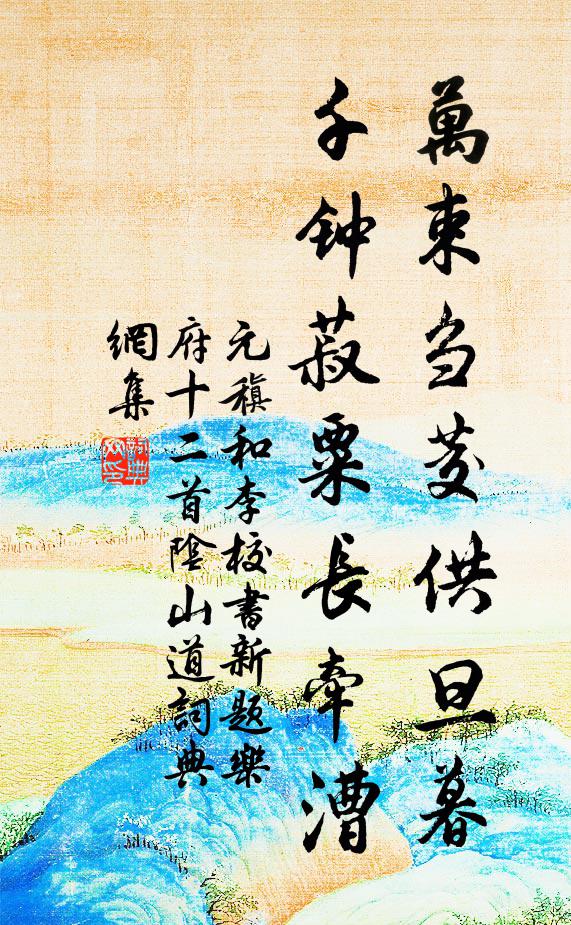 萬束刍茭供旦暮
千钟菽粟長牽漕
元稹和李校書新題樂
府十二首陰山道詞典
網集